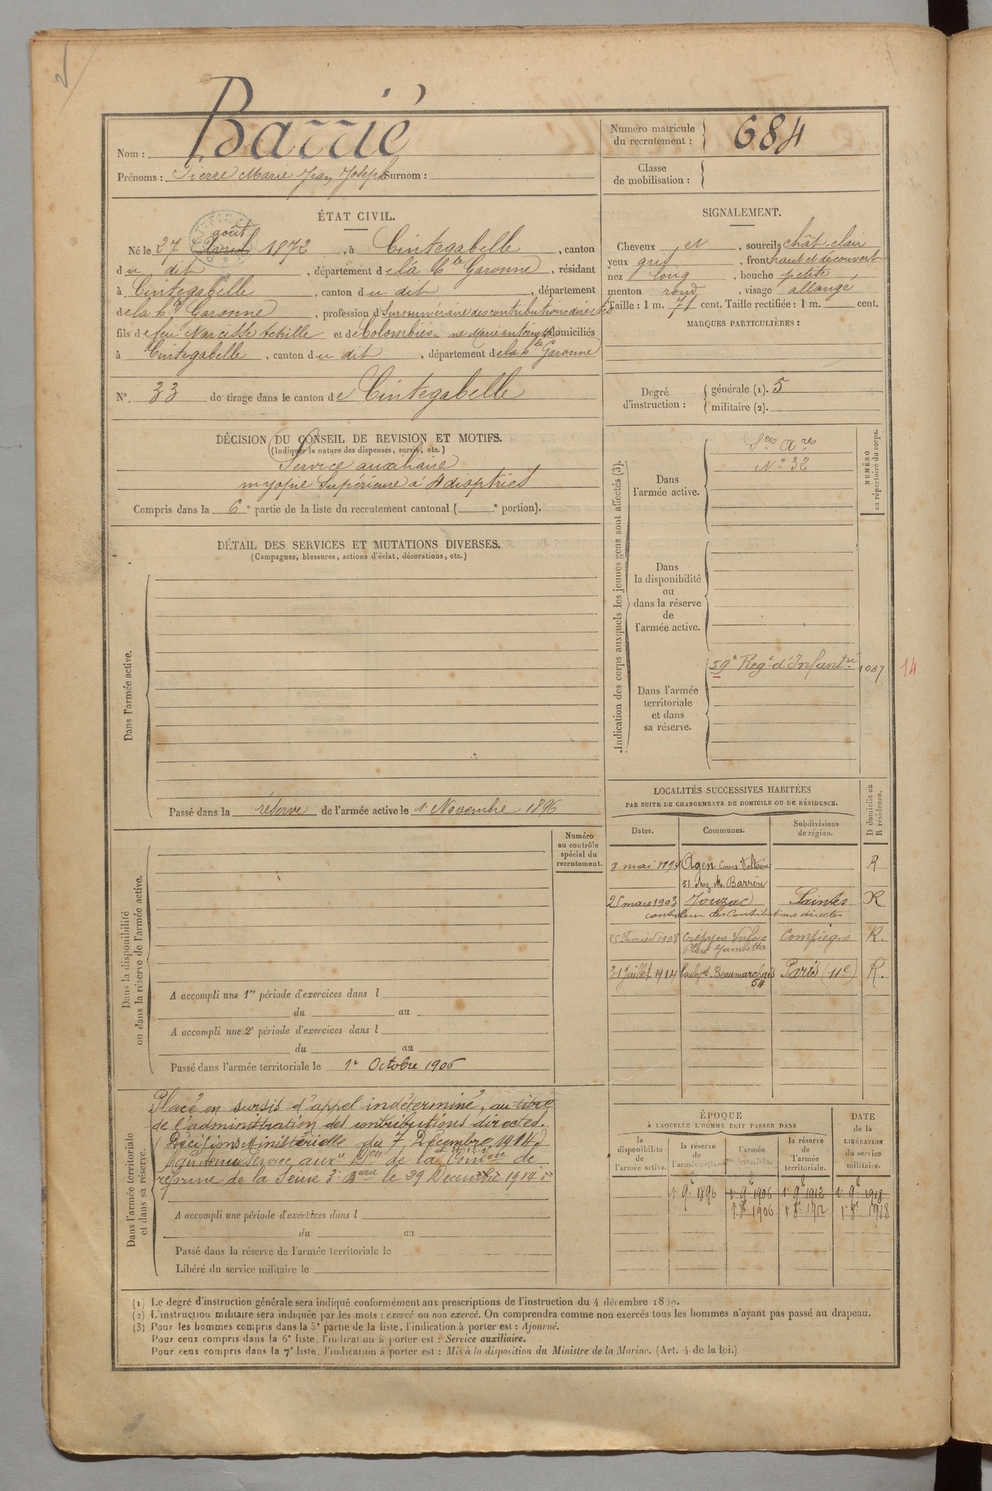 Barrié
Nom :
Prénoms : Pierre Marie Jean Joseph Surnom :
Numéro matricule du recrutement : 684
Classe de mobilisation :
ÉTAT CIVIL.
août
Né le 27 Avril 1872, à Cintegabelle, canton
du dit, département de la Hte Garonne, résidant
à Cintegabelle, canton du dit, département
de la Hte Garonne, profession de Surnuméraire des contributions directes
fils de feu Narcisse Achille et de Colombiés Marie domiciliés
à Cintegabelle, canton du dit, département de la Hte Garonne
N° 33 de tirage dans le canton de Cintegabelle
SIGNALEMENT.
Cheveux et, sourcils chât. clair
yeux gris, front haut et découvert
nez long, bouche petite,
menton rond, visage allongé
Taille : 1 m. 71 cent. Taille rectifiée : 1 m. cent.
MARQUES PARTICULIÈRES :
Degré d'instruction : générale (1). 5
militaire (2).
DÉCISION DU CONSEIL DE REVISION ET MOTIFS.
(Indiquer la nature des dispenses, sursis, etc.)
Service auxiliaire
myopie supérieure à 4 dioptries
Compris dans la 6e partie de la liste du recrutement cantonal ( e portion).
DÉTAIL DES SERVICES ET MUTATIONS DIVERSES.
(Campagnes, blessures, actions d'éclat, décorations, etc.)
Dans l'armée active.
Passé dans la réserve de l'armée active le 1 Novembre 1896
Indication des corps auxquels les jeunes gens sont affectés (3).
NUMÉRO au répertoire du corps.
Dans l'armée active.
Ses Ares
N° 32
Dans la disponibilité ou dans la réserve de l'armée active.
Dans l'armée territoriale et dans sa réserve.
59e Regt d'Infantie 1087 14
LOCALITÉS SUCCESSIVES HABITÉES
PAR SUITE DE CHANGEMENTS DE DOMICILE OU DE RÉSIDENCE.
D domicile ou R résidence.
Dates. Communes. Subdivisions de région.
3 mai 1894 Agen Cours Voltaire R
51 chez M. Barrière
25 mars 1903 Jonzac Saintes R
controleur des Contributions directes
Février 1908 Crépy en Valois Compiègne R.
Place Gambetta
31 juillet 1914 Boulevd Beaumarchais Paris (11e) R.
54
Numéro au contrôle spécial du recrutement.
Dans la disponibilité ou dans la réserve de l'armée active.
A accompli une 1re période d'exercices dans l
du au
A accompli une 2e période d'exercices dans l
du au
Passé dans l'armée territoriale le 1er Octobre 1906
Dans l'armée territoriale et dans sa réserve.
Placé en sursis d'appel indéterminé, au titre
de l'administration des contributions directes.
Décision Ministérielle du 7 Décembre 1914.
Maintenu Service auxre Don de la Comson de
réforme de la Seine 3e Beau le 29 Décembre 1914
A accompli une période d'exercices dans l
du au
Passé dans la réserve de l'armée territoriale le
Libéré du service militaire le
ÉPOQUE
À LAQUELLE L'HOMME DOIT PASSER DANS
DATE de la LIBÉRATION du service militaire.
la disponibilité de l'armée active.
la réserve de l'armée active.
l'armée territoriale.
la réserve de l'armée territoriale.
1 9e 1896 1 9e 1906 1 9e 1912 1 9e 1918
1 8e 1906 1 8e 1912 1 8e 1918
(1) Le degré d'instruction générale sera indiqué conformément aux prescriptions de l'instruction du 4 décembre 1889.
(2) L'instruction militaire sera indiquée par les mots : exercé ou non exercé. On comprendra comme non exercés tous les hommes n'ayant pas passé au drapeau.
(3) Pour les hommes compris dans la 5e partie de la liste, l'indication à porter est : Ajourné.
Pour ceux compris dans la 6e liste, l'indication à porter est : Service auxiliaire.
Pour ceux compris dans la 7e liste, l'indication à porter est : Mis à la disposition du Ministre de la Marine. (Art. 4 de la loi.)